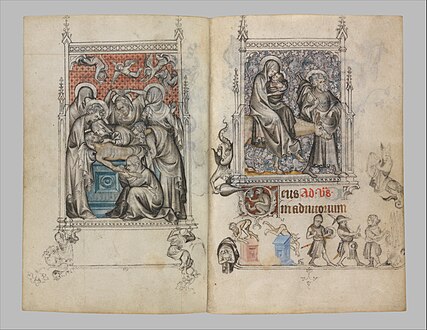 Deus Ad vs
in adiutorium